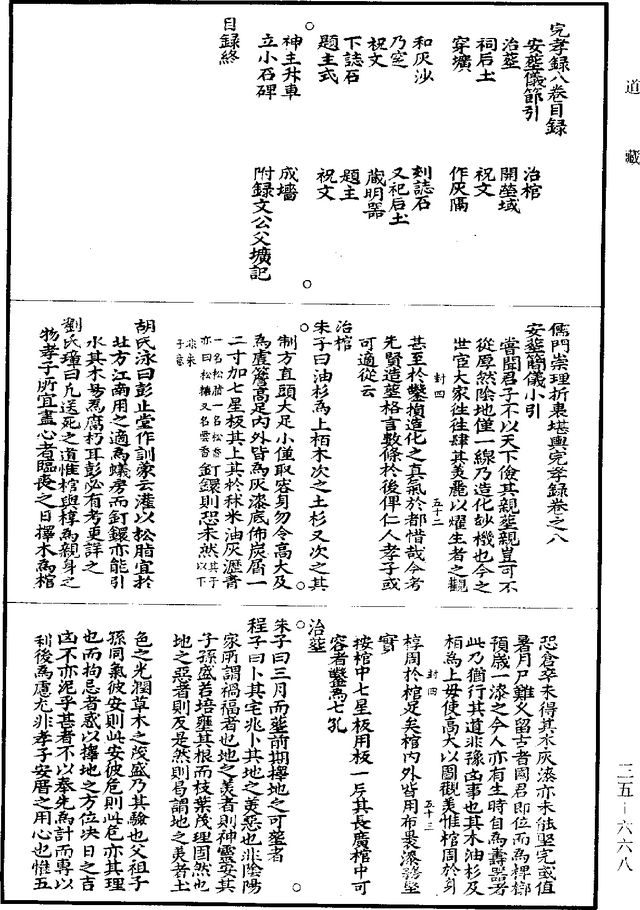 道藏
完孝録八卷目録
安塟儀節引
治棺
治塟
開塋域
祠后土
祝文
穿壙
作灰隔
和灰沙
刻誌石
乃窆
又祀后土
祝文
藏明器
下誌石
題主
題主式
祝文
神主升車
成墳
立小石碑
附録文公父壙記
目録終
儒門崇理折衷堪輿完孝録卷之八
安塟簡儀小引
嘗聞君子不以天下儉其親塟親豈可不
從厚然陰地僅一線乃造化玅機也今之
世宦大家徃徃肆其美麗以燿生者之觀
甚至於鑿損造化之真氣於都惜哉今考
先賢造塟格言數條於後俾仁人孝子或
可適從云
治棺
朱子曰油杉為上栢木次之土杉又次之其
制方直頭大足小僅取容身勿令高大及
為虛簷高足内外皆為灰漆底佈炭屑一
二寸加七星板其上其於秫米油灰瀝青
一名松脂一名松香
亦曰松糖又名雲香
釘鐶則恐未然
胡氏泳曰彭止堂作訓蒙云灌以松脂宜於
北方江南用之適為蟻房而釘鐶亦能引
水其木易為腐朽耳彭必有考更詳之
劉氏璋曰凡送死之道惟棺與椁為親身之
物孝子所宜盡心者臨喪之日擇木為棺
恐倉卒未得其木灰漆亦未能堅完或值
暑月尸難久留古者國君即位而為椑
預歲一漆之今人亦有生時自為壽器者
此乃猶行其道非豫凶事也其木油杉及
栢為上毋使高大以圖觀美惟棺周於身
椁周於棺足矣棺内外皆用布裹漆務堅
實
按棺中七星板用板一片其長廣棺中可
容者鑿為七孔
治塟
朱子曰三月而塟前期擇地之可塟者
程子曰卜其宅兆卜其地之美惡也非陰陽
家所謂禍福者也地之美者則神靈安其
子孫盛若培壅其根而枝葉茂理固然也
地之惡者則反是然則曷謂地之美者土
色之光潤草木之茂盛乃其驗也父祖子
孫同氣彼安則此安彼危則此危亦其理
也而拘忌者惑以擇地之方位决日之吉
凶不亦泥乎甚者不以奉先為計而專以
利後為慮尤非孝子安厝之用心也惟五
三五－六六八